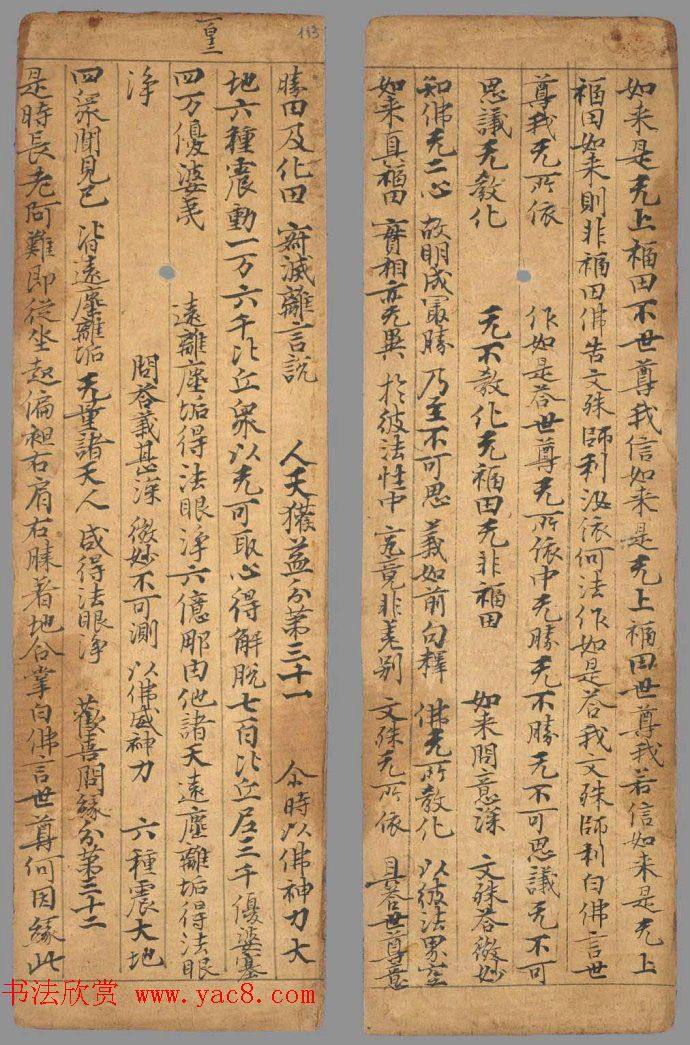 如来是无上福田不世尊我信如来是无上福田世尊我若信如来是无上
福田如来則非福田佛告文殊師利汝依何法作如是荅我文殊師利白佛言世
尊我无所依 作如是荅世尊无所依中无勝无不勝无不可思議无不可
思議无教化 无不教化无福田无非福田 如来問意深 文殊荅微妙
知佛无二心 故明成冣勝 乃至不可思 義如前句釋 佛无所教化 以彼法界空
如来真福田 實相亦无異 於彼法性中 究竟非差别 文殊无所依 具荅世尊意
113
一皇二
勝田及化田 寂滅離言説 人天獲益分第三十一 尒時以佛神力大
地六種震動一万六千比丘衆以无可取心得解脱七百比丘尼三千優婆塞
四万優婆夷 遠離塵垢得法眼浄六億那由他諸天遠塵離垢得法眼
浄 問荅義甚深 微妙不可測 以佛威神力 六種震大地
四衆聞見已 皆遠塵離垢 无量諸天人 咸得法眼浄 歡喜問緣分第三十二
是時長老阿難即從坐起偏袒右肩右膝着地合掌白佛言世尊何因緣此
书法欣赏 www.yac8.com